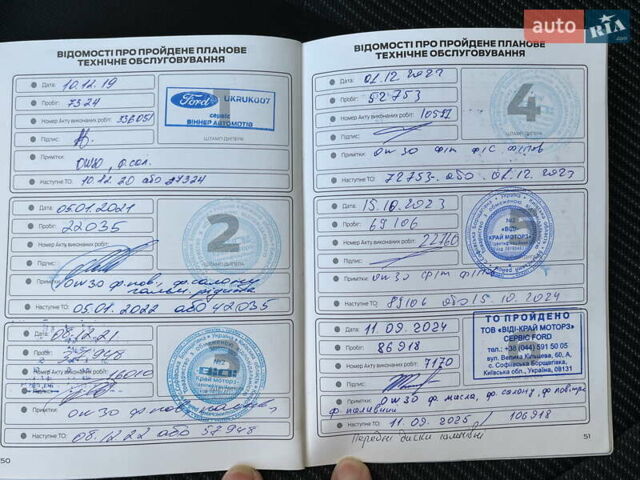 auto RIA
ВІДОМОСТІ ПРО ПРОЙДЕНЕ ПЛАНОВЕ
ТЕХНІЧНЕ ОБСЛУГОВУВАННЯ
Дата: 10.12.19
Пробіг: 7324
Номер Акту виконаних робіт: 336051
Підпис:
ШТАМП ДИЛЕРА
Ford
UKRUK007
сервіс
ВІННЕР АВТОМОТІВ
Примітки:
0W30, ф.сал.
Наступне ТО: 10.12.20 або 27324
Дата: 05.01.2021
Пробіг: 22035
Номер Акту виконаних робіт:
Підпис:
2
Примітки: 0W30 ф.пов, ф.салону
Наступне ТО: 05.01.2022 або 42035
Дата: 08.12.21
Пробіг: 37948
16010
Край Моторз
Примітки: 0W30 ф.пов,
Наступне ТО: 08.12.22 або 57948
50
ВІДОМОСТІ ПРО ПРОЙДЕНЕ ПЛАНОВЕ
ТЕХНІЧНЕ ОБСЛУГОВУВАННЯ
Дата: 01.12.2022
Пробіг: 52753
Номер Акту виконаних робіт:
Підпис:
4
ШТАМП ДИЛЕРА
Примітки: 0W30 ф/м ф/с ф/пов
Наступне ТО: 72753 або 01.12.2023
Дата: 15.10.2023
Пробіг: 69106
Номер Акту виконаних робіт: 22760
Підпис:
5
"ВІДІ-
КРАЙ МОТОРЗ"
Примітки: 0W30
Наступне ТО: 89106 або 15.10.2024
Дата: 11.09.2024
Пробіг: 86918
Номер Акту виконаних робіт: 7170
Підпис:
ТО ПРОЙДЕНО
ТОВ «ВІДІ-КРАЙ МОТОРЗ»
СЕРВІС FORD
тел.: +38 (044) 591 50 05
вул. Велика Кільцева, 60, А,
с. Софіївська Борщагівка,
Київська обл., Україна, 08131
Примітки: 0W30 ф масла, ф. салону, ф.повітря
ф паливний
Наступне ТО: 11.09.2025 / 106918
51
Передні диски гальмівні